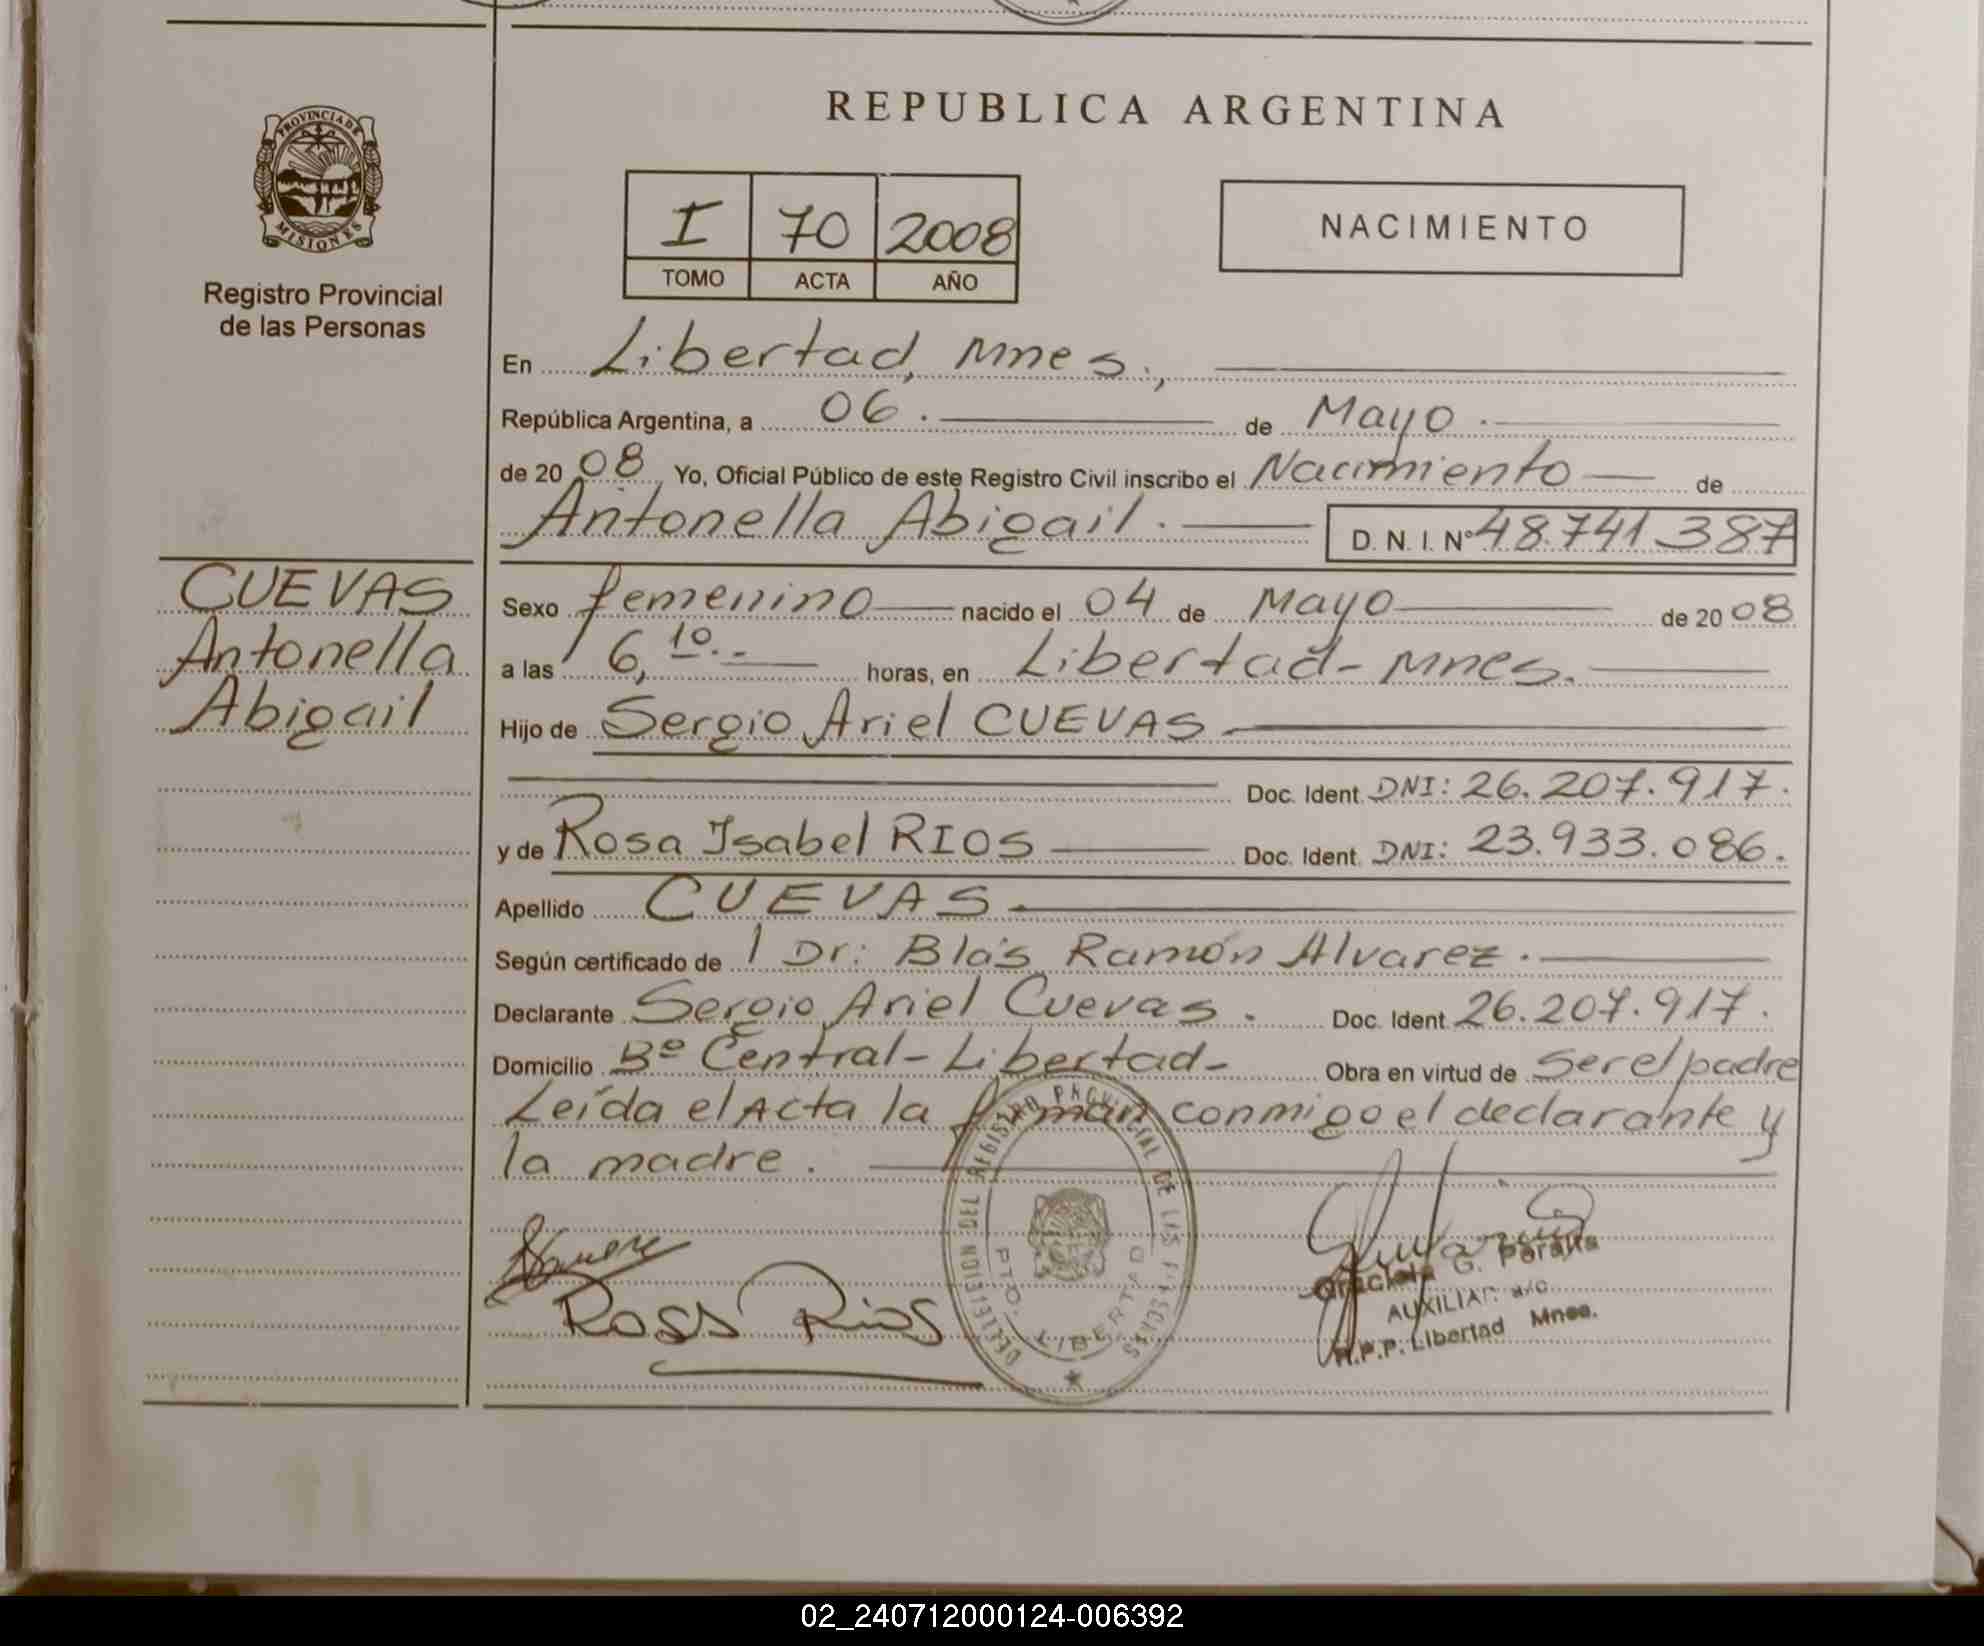 REPUBLICA ARGENTINA
PROVINCIA DE
MISIONES
Registro Provincial
de las Personas
I 70 2008
TOMO ACTA AÑO
NACIMIENTO
En Libertad, Mnes.,
República Argentina, a 06. de Mayo.
de 20 08 Yo, Oficial Público de este Registro Civil inscribo el Nacimiento de
Antonella Abigail. D. N. I. Nº 48.741.387
CUEVAS
Antonella
Abigail
Sexo femenino nacido el 04 de Mayo de 20 08
a las 6,10.- horas, en Libertad - Mnes.
Hijo de Sergio Ariel CUEVAS
Doc. Ident. DNI: 26.207.917.
y de Rosa Isabel RIOS Doc. Ident. DNI: 23.933.086.
Apellido CUEVAS.
Según certificado de Dr: Blás Ramón Alvarez.
Declarante Sergio Ariel Cuevas. Doc. Ident. 26.207.917.
Domicilio Bº Central - Libertad - Obra en virtud de Ser el padre
Leída el Acta la firman conmigo el declarante y
la madre.
REGISTRO PROVINCIAL DE LAS PERSONAS
PTO. LIBERTAD
Rosa Rios
Graciela G. Peralta
AUXILIAR a/c
R.P.P. Libertad Mnes.
02_240712000124-006392